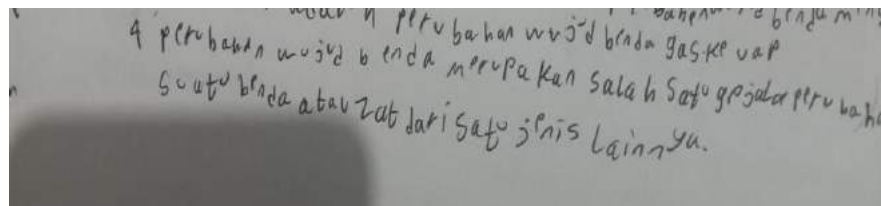 perubahan wujud benda gas ke uap
4 perubahan wujud benda merupakan salah satu gejala perubaha
Suatu benda atau zat dari satu jenis Lainnya.